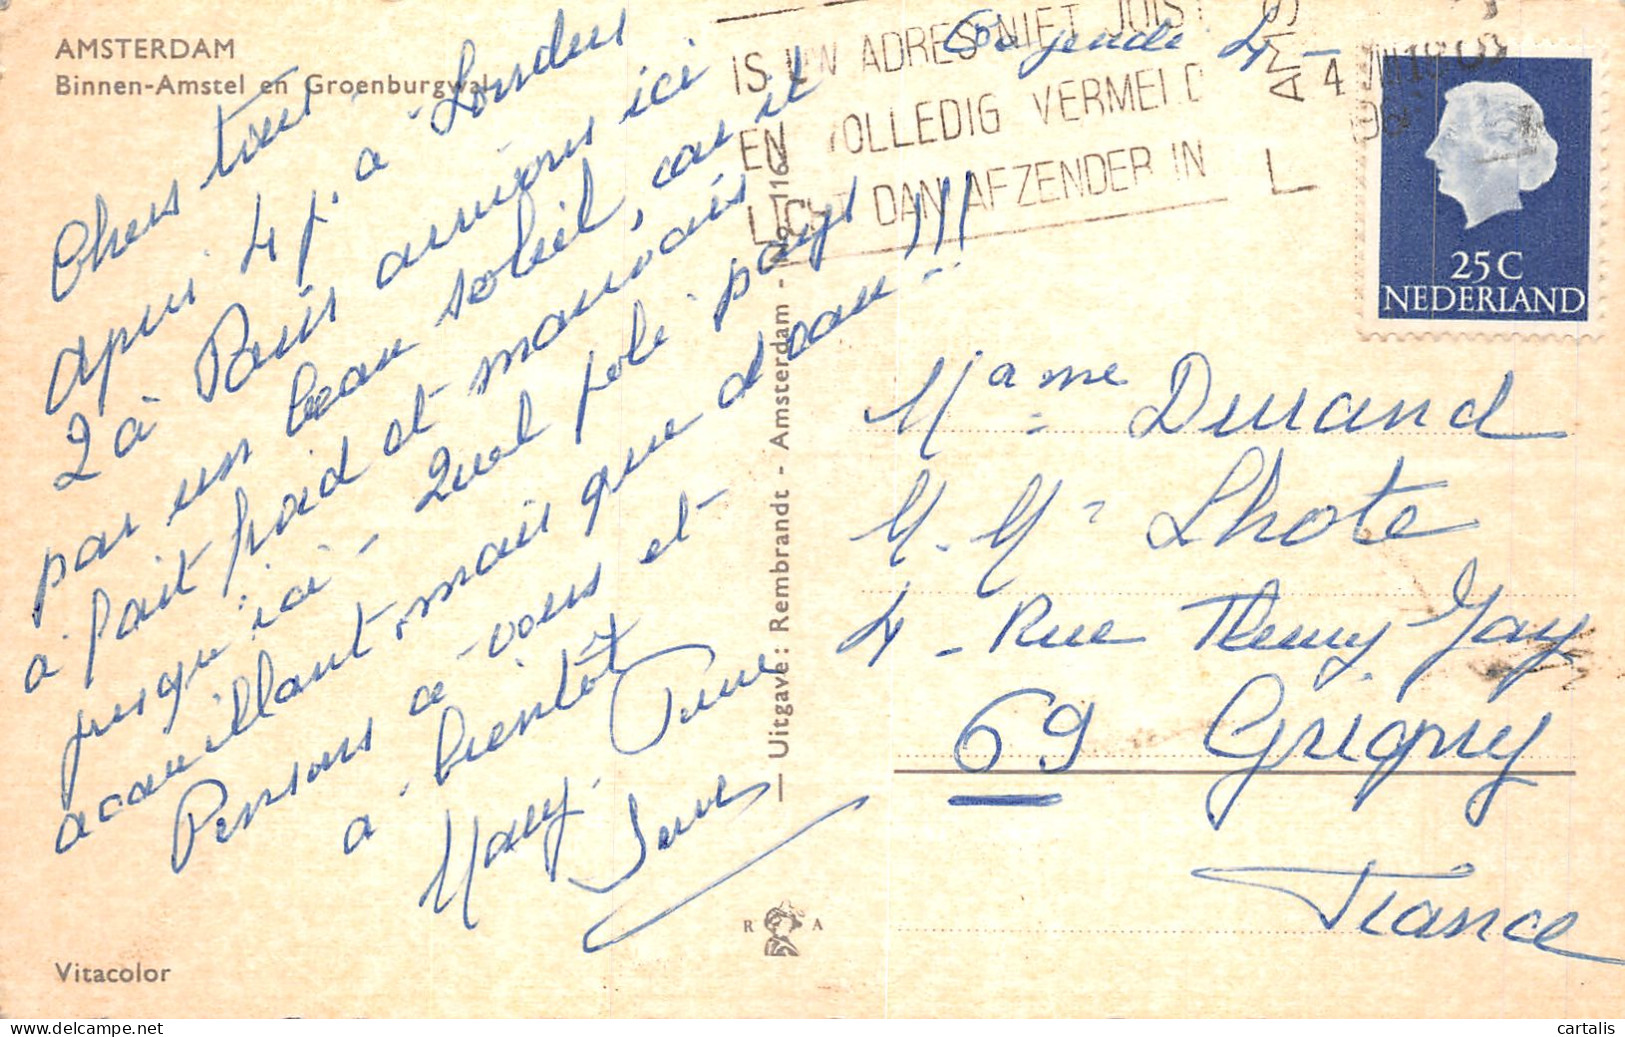 AMSTERDAM
Binnen-Amstel en Groenburgwal
Chers tous
après 4 j. à Londres
2 à Paris arrivons ici
par un beau soleil, car il
a fait froid et mauvais
jusqu'ici - Quel joli pays
accueillant, mais que d'eau !!!
Pensons à vous et
à bientôt
Mary. Pierre
Vitacolor
Uitgave: Rembrandt - Amsterdam -
R A
IS UW ADRES NIET JUIST
EN VOLLEDIG VERMELD
LICHT DAN AFZENDER IN
25 C
NEDERLAND
Mame Durand
M. Me Lhote
4 - Rue Fleury Jay
69 Grigny
France
cartalis